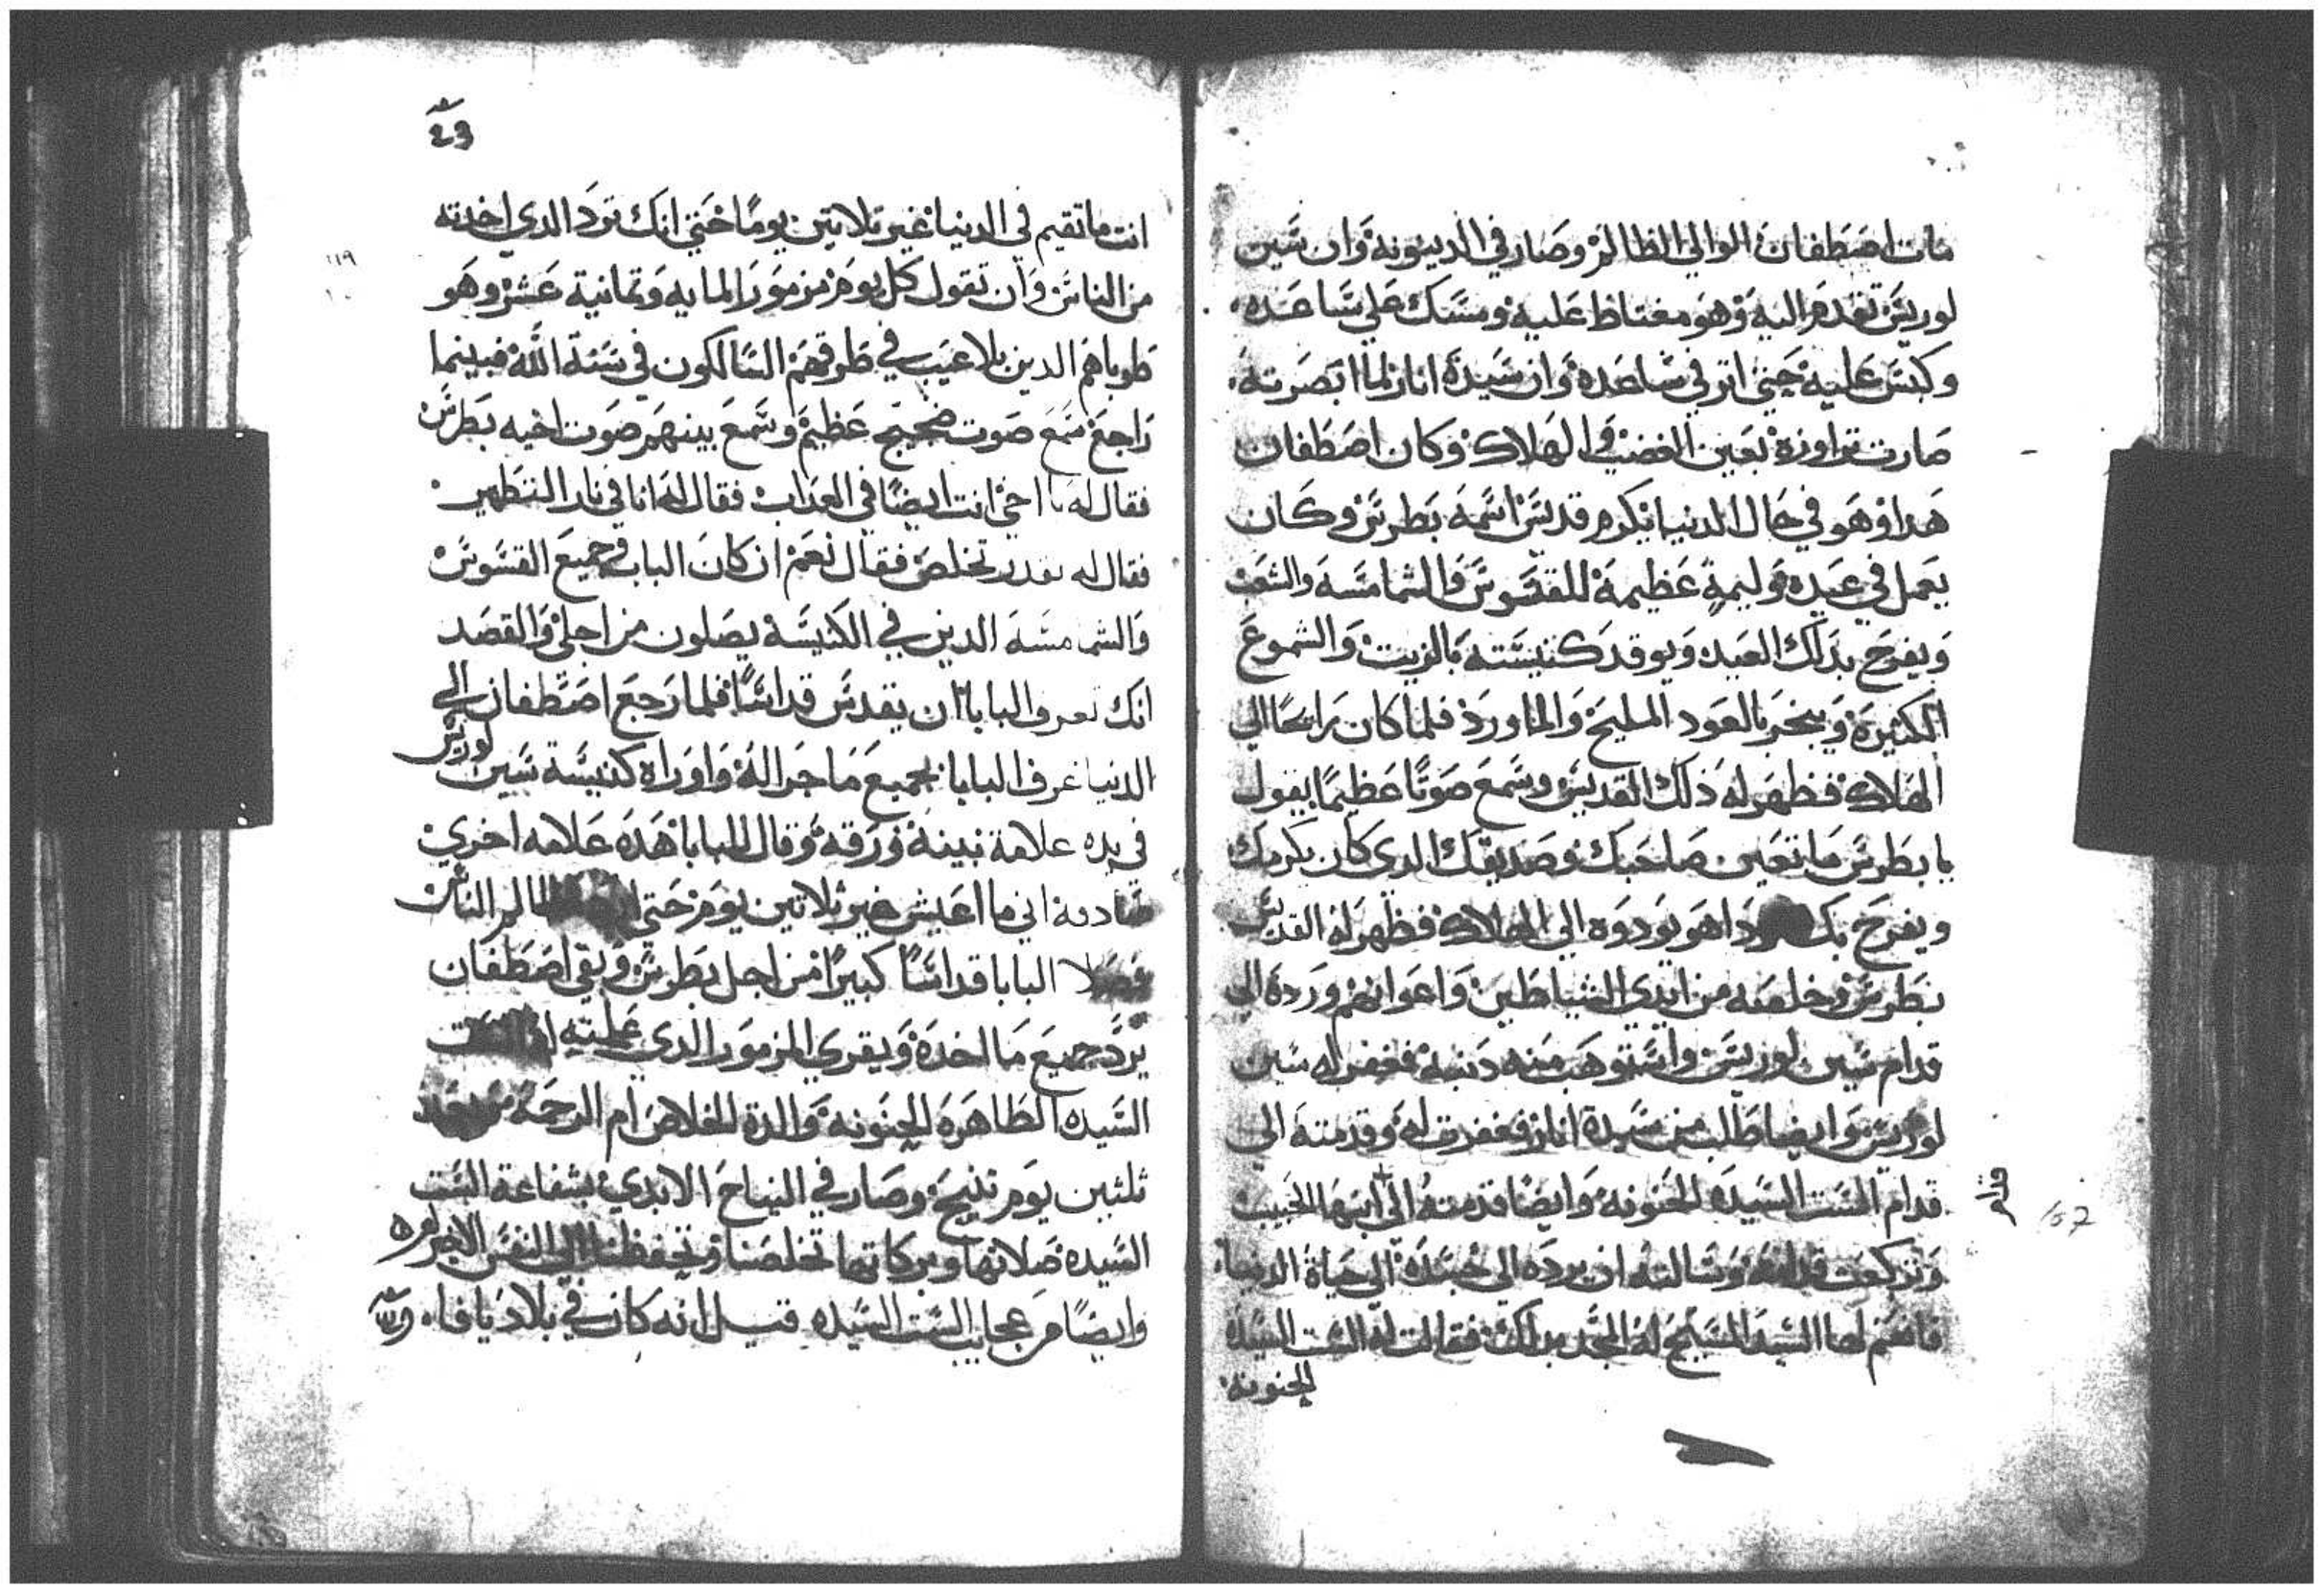 مات اصطفان الوالي الظالم وصار في الدينونة وان سين
لوريس تقدم اليه وهو مغتاظ عليه ومسك علي ساعده
وكبس عليه حتي اتر في ساعده وان سيدة انازلما ابصرته
صارت تراوزه بعين الغضب والهلاك وكان اصطفان
هدا وهو في حال الدنيا يكرم قديس اسمه بطرس وكان
يعمل في عيده وليمة عظيمة للقسوس والشمامسه والشعب
ويفرح بدلك العيد ويوقد كنيسته بالزيت والشموع
الكتيرة ويبخر بالعود المليح والماورد فلما كان رايحا الي
الهلاك فظهر له ذلك القديس وسمع صوتا عظيما يقول
يا بطرس ما تعين صاحبك وصديقك الدي كان يكرمك
ويفرح بك داهو يودوه الي الهلاك فظهر له القديس
بطرس وخلصه من ايدي الشياطين واعوانهم ورده الي
قدام سين لوريس واستوهب منه دنبه فغفر له سين
لوريس وايضا طلب من سيدة اناز فغفرت له وقدمته الي
قدام الست السيده الحنونه وايضا قدمته الي ابنها الحبيب
وتركعت قدامه وسالته ان يرده الي جسده الي حياة الدنيا
فانعم لها السيد المسيح له المجد بدلك فقالت له الست السيده
الحنونه
انت ما تقيم في الدنيا غير تلاتين يوما حتي انك ترد الدي اخدته
من الناس وان تقول كل يوم مزمور المايه وتمانية عشر وهو
طوباهم الدين بلا عيب في طرقهم السالكون في سنة الله فبينما
راجع سمع صوت ضجيج عظيم وسمع بينهم صوت اخيه بطرس
فقال له يا اخي انت ايضا في العداب فقال له انا في نار التطهير
فقال له تقدر تخلص فقال نعم ان كان الباب وجميع القسوس
والشمامسه الدين في الكنيسة يصلون من اجلي والقصد
انك تعرف البابا ان يقدس قداسا فلما رجع اصطفان الي
الدنيا عرف البابا بجميع ما جرا له واوراه كنيسة سين لوريس
في يده علامة بينة وزرقه وقال للبابا هده علامه اخري
صادقه اني ما اعيش غير ثلاتين يوم حتي الناس
البابا قداسا كبيرا من اجل بطرس وبقي اصطفان
يرد جميع ما اخده ويقري المزمور الدي علمته الست
السيده الطاهره الحنونه والدة الخلاص ام الرحمة
ثلثين يوم تنيح وصار في النياح الابدي بشفاعة الست
السيده صلاتها وبركاتها تخلصنا وتحفظنا الي النفس الاخير
وايضا من عجايب الست السيده قيل انه كان في بلاد يافا